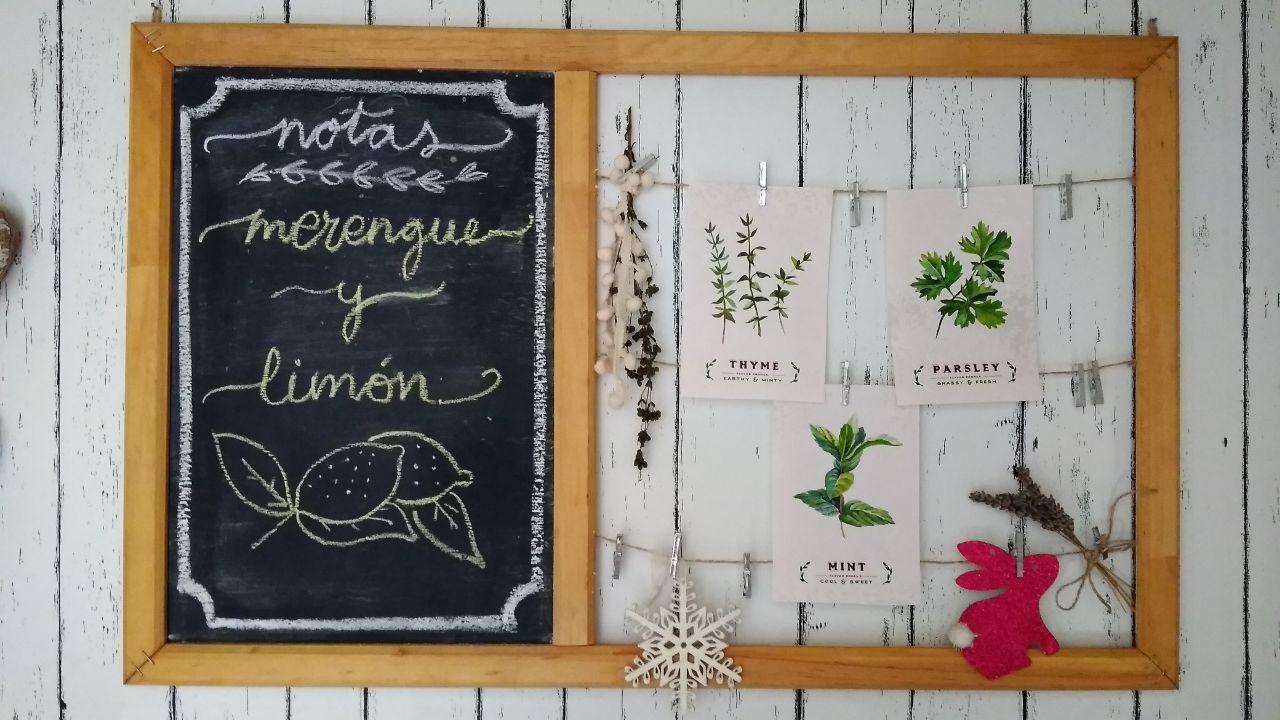 notas
merengue
y
limón
THYME
FLAVOR PROFILE
EARTHY & MINTY
PARSLEY
FLAVOR PROFILE
GRASSY & FRESH
MINT
FLAVOR PROFILE
COOL & SWEET